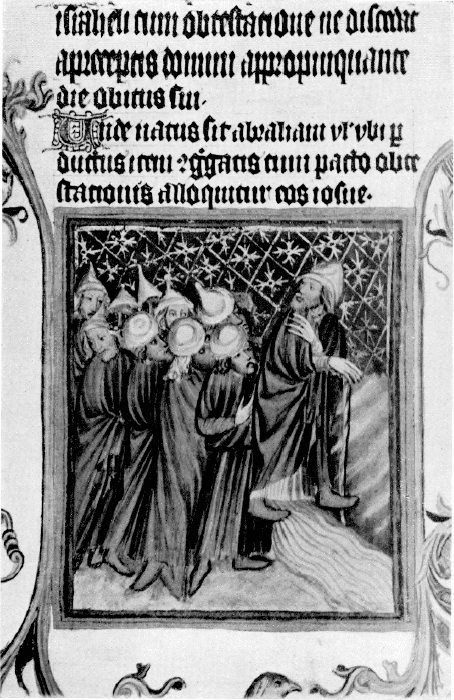 israheli cum obtestatione ne discedat
a preceptis domini appropinquante
die obitus sui.
Unde natus sit abraham vl' vbi p
ductus item ⁊ ggatis cum pacto obte
stationis alloquitur eos iosue.